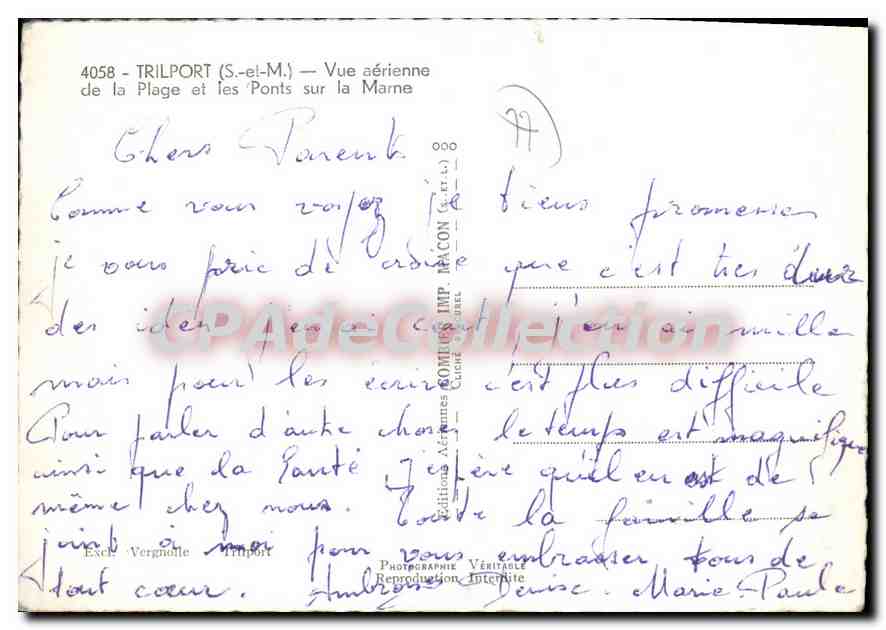 4058 - TRILPORT (S.-et-M.) — Vue aérienne
de la Plage et les Ponts sur la Marne
77
Chers Parents
Comme vous voyez je tiens promesse
je vous prie de croire que c'est très dur
des idées j'en ai cent j'en ai mille
mais pour les écrire c'est plus difficile
Pour parler d'autre choses le temps est magnifique
ainsi que la Santé J'espère qu'il en est de
même chez nous. Toute la famille se
joint à moi pour vous embrasser tous de
tout cœur. Ambroise Denise. Marie-Paule
Editions Aériennes COMBIER IMP. MACON (S.-ET-L.)
CPAdeCollection
Excl. Vergnolle Trilport
PHOTOGRAPHIE VÉRITABLE
Reproduction Interdite